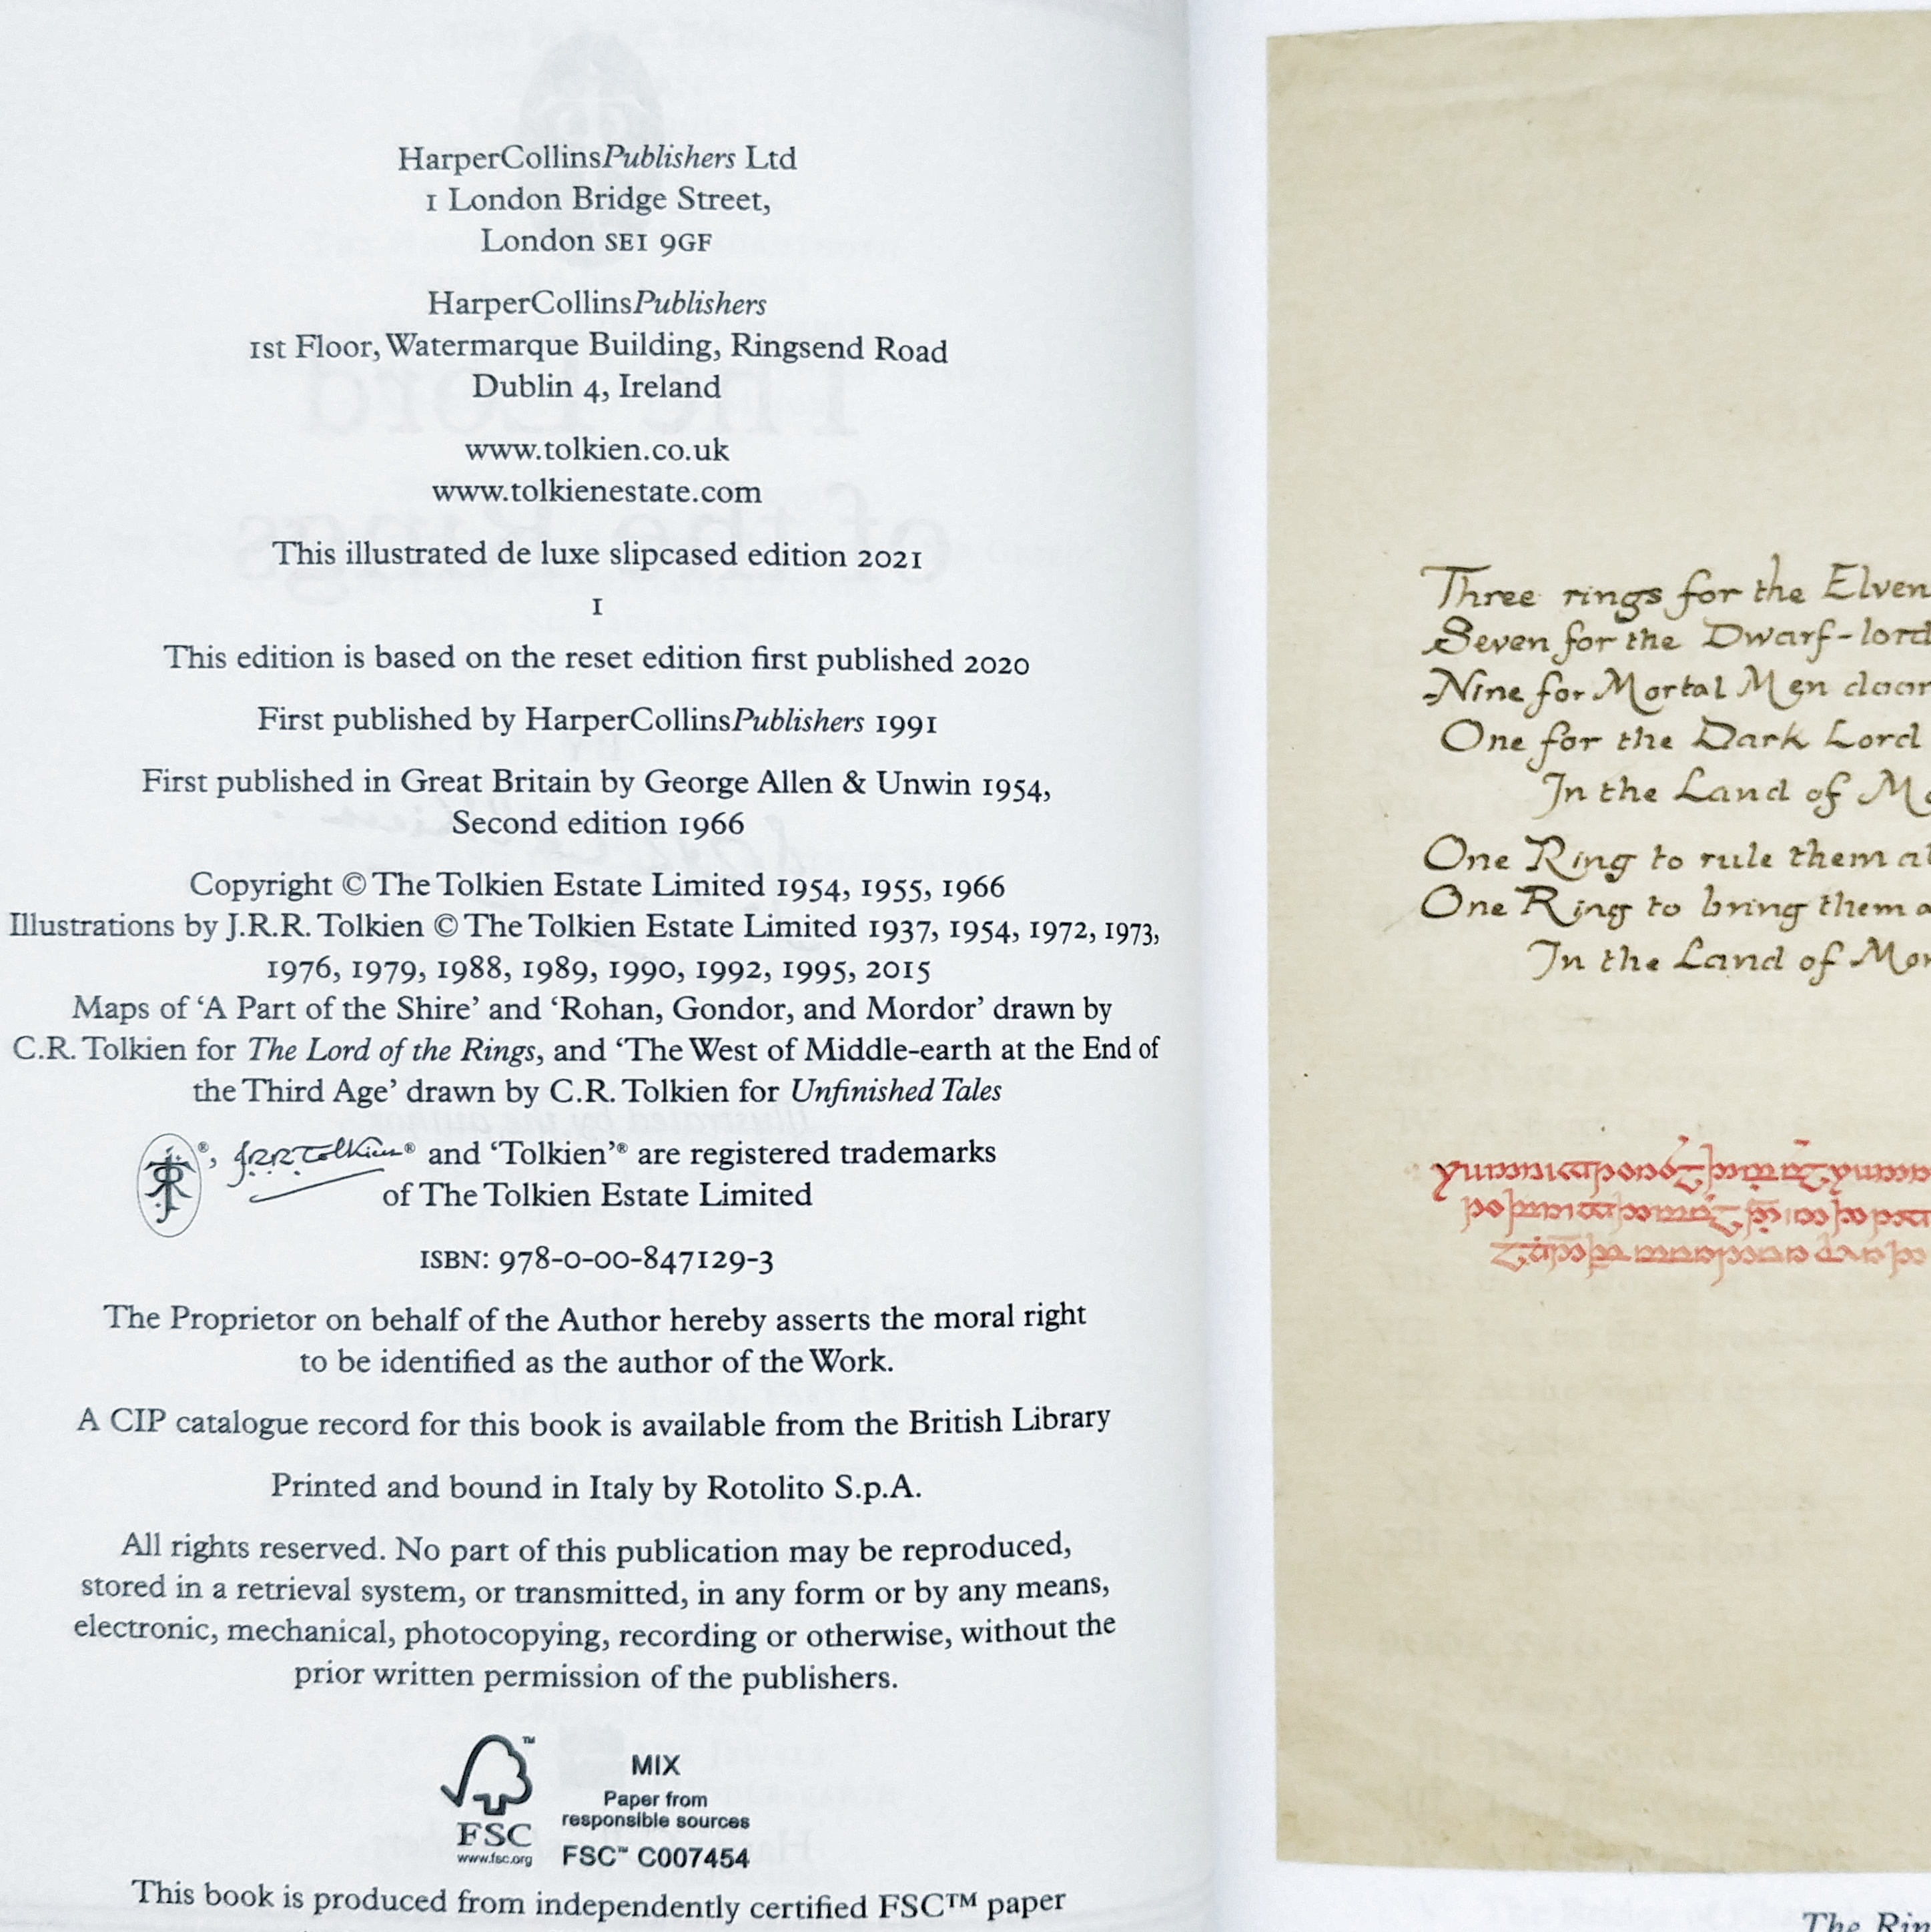 HarperCollinsPublishers Ltd
1 London Bridge Street,
London SE1 9GF
HarperCollinsPublishers
1st Floor, Watermarque Building, Ringsend Road
Dublin 4, Ireland
www.tolkien.co.uk
www.tolkienestate.com
This illustrated de luxe slipcased edition 2021
1
This edition is based on the reset edition first published 2020
First published by HarperCollinsPublishers 1991
First published in Great Britain by George Allen & Unwin 1954,
Second edition 1966
Copyright © The Tolkien Estate Limited 1954, 1955, 1966
Illustrations by J.R.R. Tolkien © The Tolkien Estate Limited 1937, 1954, 1972, 1973,
1976, 1979, 1988, 1989, 1990, 1992, 1995, 2015
Maps of ‘A Part of the Shire’ and ‘Rohan, Gondor, and Mordor’ drawn by
C.R. Tolkien for The Lord of the Rings, and ‘The West of Middle-earth at the End of
the Third Age’ drawn by C.R. Tolkien for Unfinished Tales
®, J.R.R. Tolkien® and ‘Tolkien’® are registered trademarks
of The Tolkien Estate Limited
ISBN: 978-0-00-847129-3
The Proprietor on behalf of the Author hereby asserts the moral right
to be identified as the author of the Work.
A CIP catalogue record for this book is available from the British Library
Printed and bound in Italy by Rotolito S.p.A.
All rights reserved. No part of this publication may be reproduced,
stored in a retrieval system, or transmitted, in any form or by any means,
electronic, mechanical, photocopying, recording or otherwise, without the
prior written permission of the publishers.
™
FSC
www.fsc.org
MIX
Paper from
responsible sources
FSC™ C007454
This book is produced from independently certified FSC™ paper
Three rings for the Elven
Seven for the Dwarf-lord
Nine for Mortal Men
One for the Dark Lord
In the Land of
One Ring to rule them
One Ring to bring them
In the Land of
The